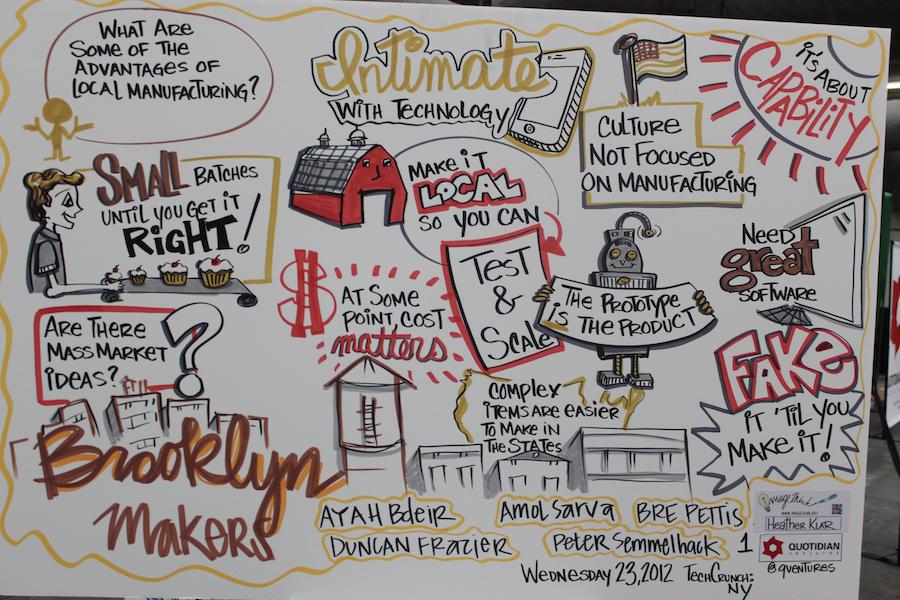 WHAT ARE
SOME OF THE
ADVANTAGES OF
LOCAL MANUFACTURING?
Intimate
WITH TECHNOLOGY
CULTURE
NOT FOCUSED
ON MANUFACTURING
IT'S ABOUT
CAPABILITY
SMALL BATCHES
UNTIL YOU GET IT
RIGHT!
MAKE IT
LOCAL
SO YOU CAN
TEST
&
SCALE
THE PROTOTYPE
IS THE PRODUCT
NEED
great
SOFTWARE
$ AT SOME
POINT, COST
matters
ARE THERE
MASS MARKET
IDEAS?
?
FAKE
IT 'TIL YOU
MAKE IT!
COMPLEX
ITEMS ARE EASIER
TO MAKE IN
THE STATES
Brooklyn
MAKERS
AYAH BDEIR
AMOL SARVA
BRE PETTIS
DUNCAN FRAZIER
PETER SEMMELHACK
1
WEDNESDAY 23, 2012 TECHCRUNCH:
NY
ImageThink
WWW.IMAGETHINK.NET
HEATHER KLAR
QUOTIDIAN
VENTURES
@QVENTURES